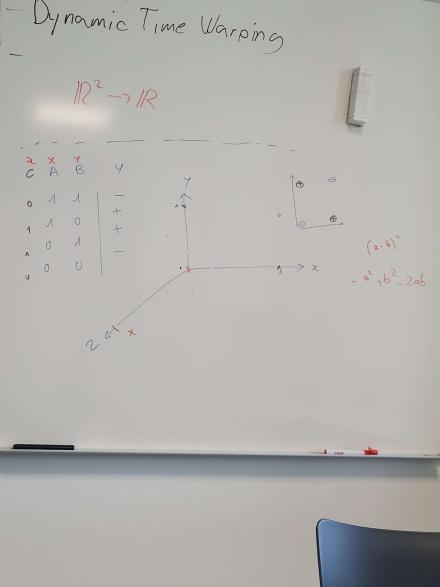 - Dynamic Time Warping
-
ℝ² → ℝ
z x y
C A B Y
0 1 1 -
1 1 0 +
1 0 1 +
0 0 0 -
Y
X
Z
x
b
(a-b)²
= a² + b² - 2ab